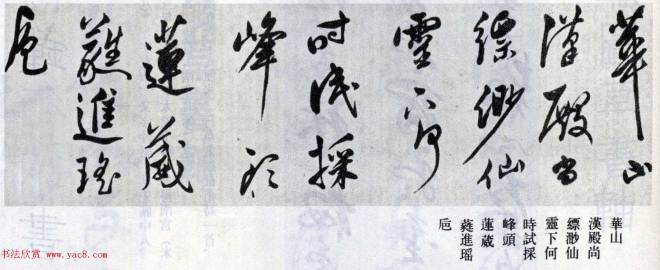 華山
漢殿尚
縹緲仙
靈下何
時試採
峰頭
蓮葳
蕤進瑤
巵
華山
漢殿尚
縹渺仙
靈下何
時試採
峰頭
蓮葳
蕤進瑶
巵
书法欣赏 www.yac8.com